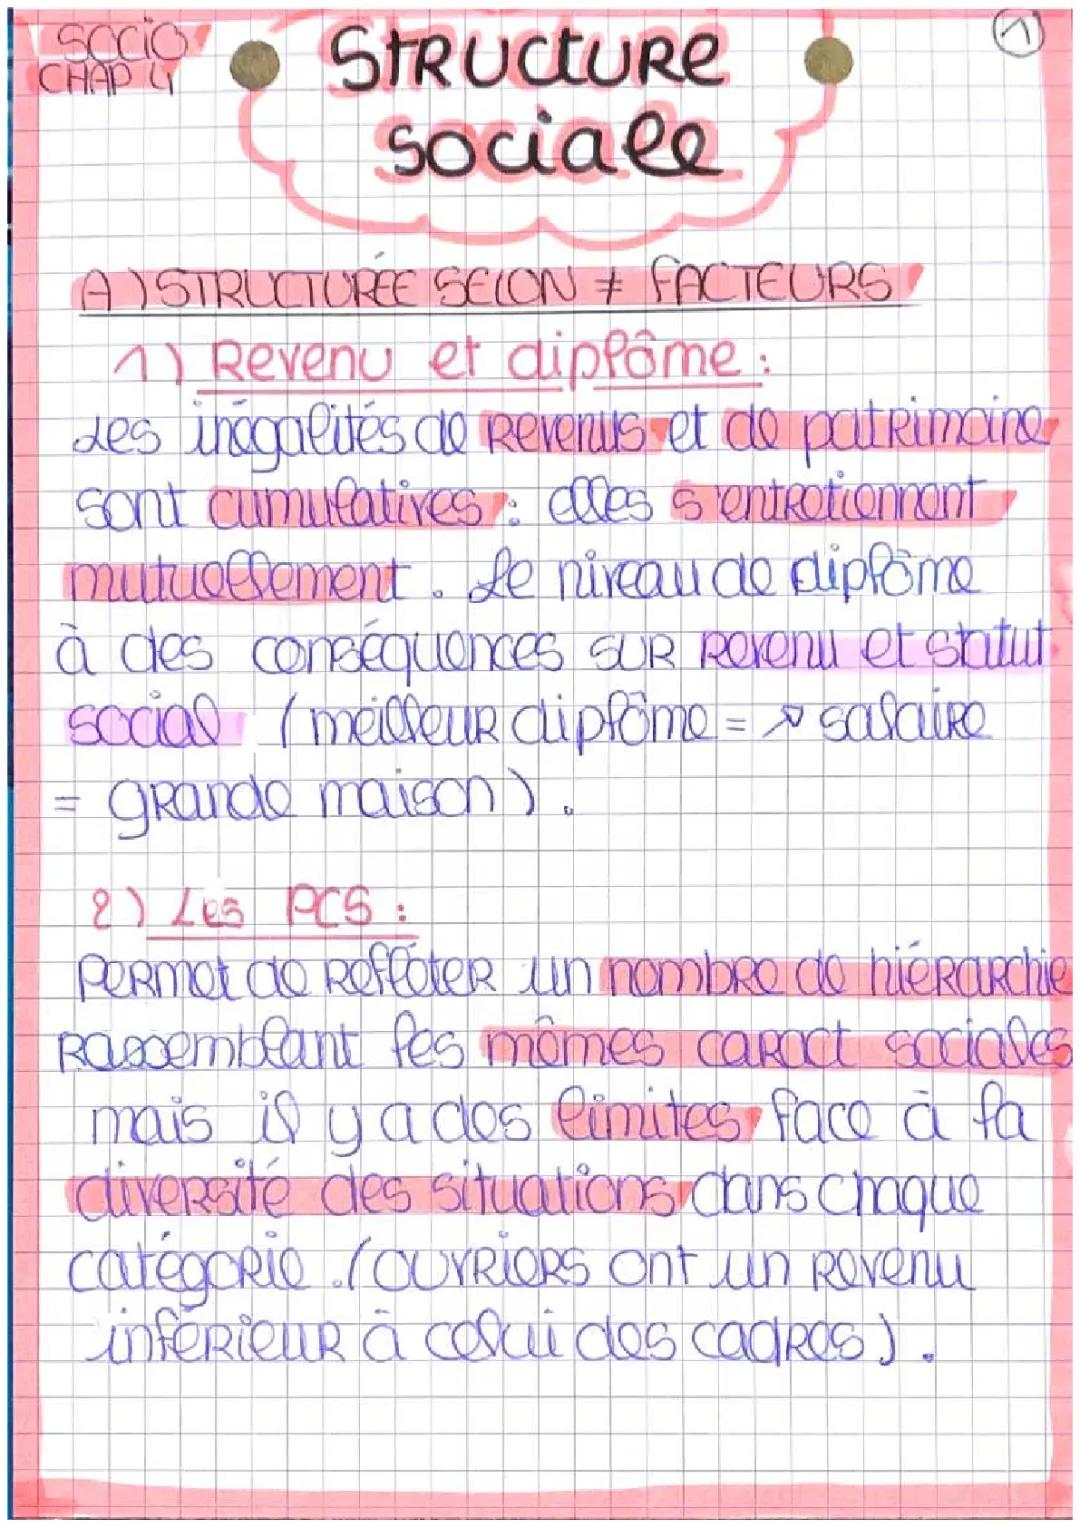 SOCIO
CHAP 4
1
STRUCTURE
sociale
A) STRUCTURÉE SELON ≠ FACTEURS
1) Revenu et diplôme :
Les inégalités de revenus et de patrimoine
sont cumulatives : elles s'entretiennent
mutuellement. Le niveau de diplôme
à des conséquences sur revenu et statut
social (meilleur diplôme = ↗ salaire
= grande maison).
2) Les PCS :
Permet de refléter un nombre de hiérarchie
rassemblant les mêmes caract sociales
mais il y a des limites face à la
diversité des situations dans chaque
catégorie. (ouvriers ont un revenu
inférieur à celui des cadres).